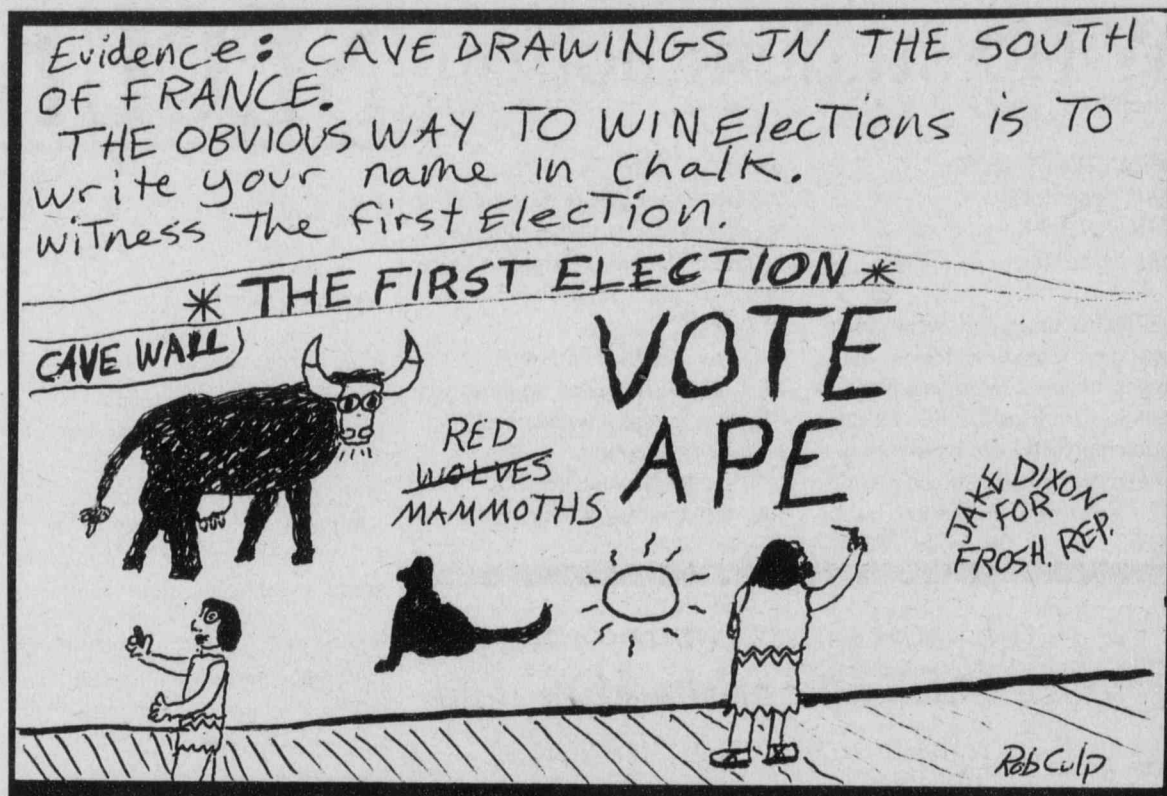 Evidence: CAVE DRAWINGS IN THE SOUTH
OF FRANCE.
THE OBVIOUS WAY TO WIN Elections is To
write your name in Chalk.
witness The first Election.
* THE FIRST ELECTION *
CAVE WALL
VOTE
APE
RED
WOLVES
MAMMOTHS
JAKE DIXON
FOR
FROSH. REP.
Rob Culp